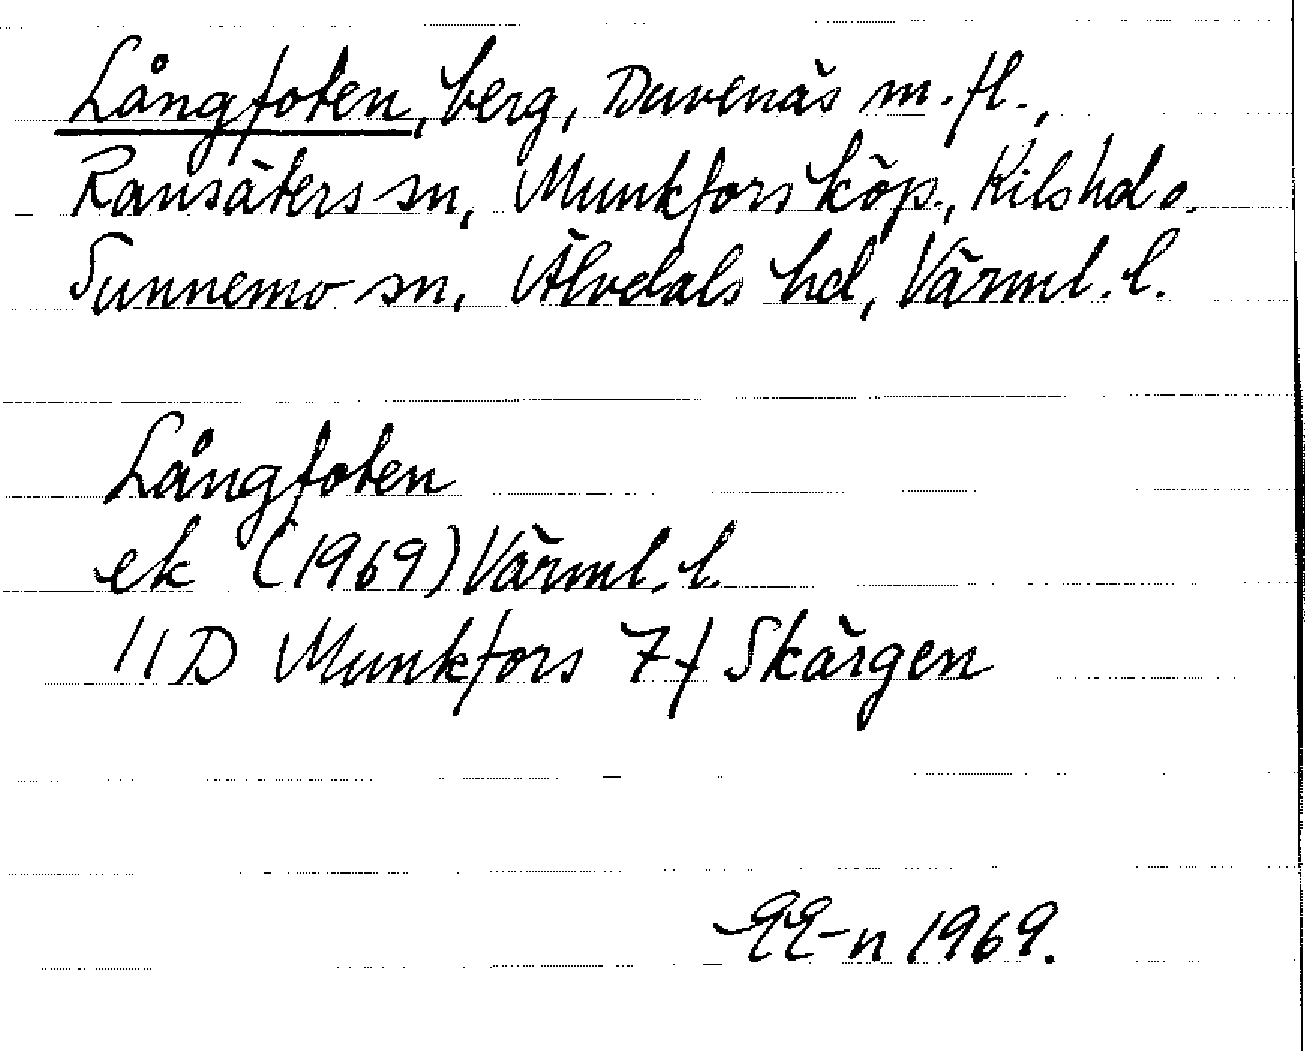 Långfoten, berg, Duvenäs m. fl.,
Ransäters sn, Munkfors köp., Kils hd o.
Sunnemo sn, Älvdals hd, Värml. l.
Långfoten
ek (1969) Värml. l.
11 D Munkfors 7 f Skärgen
EE-n 1969.